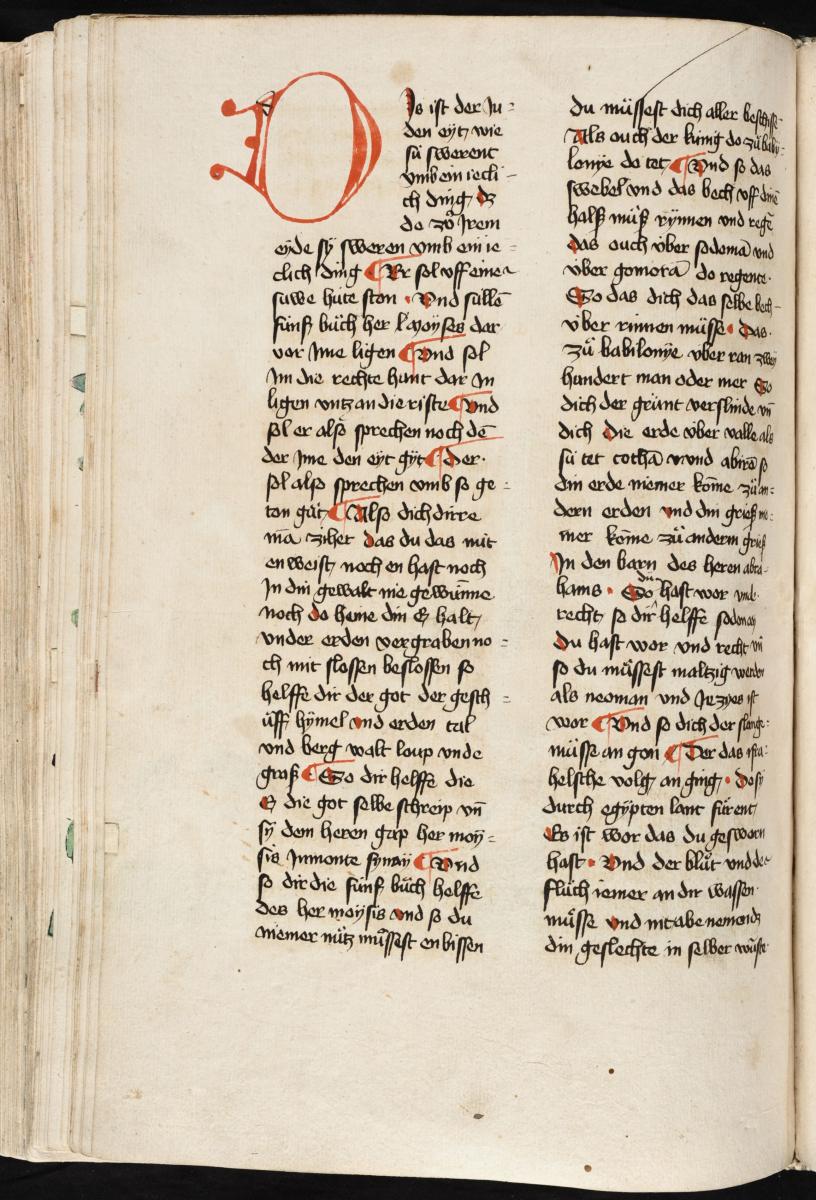 Dis ist der Ju=
den eyt, wie
sü swerent
vmb ein iecli-
ch ding, dz
do zů Jrem
eyde sÿ sweren vmb ein ie=
clich ding Er sol vff einer
suwe hute ston · Vnd süllē
fünf bůch her Moyses dar
vor Jme ligen Vnd sol
Jm die rechte hant dar Jn
ligen vntz an die riste Vnd
sol er also sprechen noch dē
der Jme den eyt gÿt Der·
sol also sprechen vmb so ge=
ton gůt, Also dich dirre
mā zihet das du das nüt
en weist, noch en hast noch
Jn din gewalt nie gewünne
noch do heine din E halt,
vnder erden vergraben no=
ch mit slossen beslossen so
helffe dir der got der gesch=
ůff hÿmel vnd erden tal
vnd berg walt loup vnde
groß So dir helffe die
E die got selbe schreip vn̄
sÿ dem heren gap her moÿ=
sis Jn monte sÿnaÿ Vnd
so dir die fünf bůch helffe
des her moÿsis vnd so du
niemer nütz müssest enbissen
du müssest dich aller
Als ouch der künig do zů
lonÿe do tet, Vnd so das
swebel vnd das bech vff dinē
halß müß rÿnnen vnd regē
das ouch über sodomā vnd
über gomorā do regente·
So das dich das selbe bech
über rinnen müsse · Das·
zů babilonÿe über ran zweÿ
hundert man oder mer So
dich der grunt verslinde vn̄
dich die erde über valle als
sü tet cothā vnnd abirō so
din erde niemer kōme zů an=
dern erden vnd din grieß nie=
mer kōme zů anderm grieß
Jn den barn des heren abra=
hams · So dů hast wor vnd
recht, so dir helffe
du hast wor vnd recht vn̄
so du müssest maltzig werden
als neoman vnd Jezÿes ist
wor Vnd so dich der slange
müsse an gon Der das isra=
helsche volg, an ging, · do sÿ
durch egÿpten lant fürent,
Es ist wor das du gesworn
hast · Vnd der blůt vnd der
flůch iemer an dir wassen·
müsse vnd nüt abe nemende
din geslechte in selber